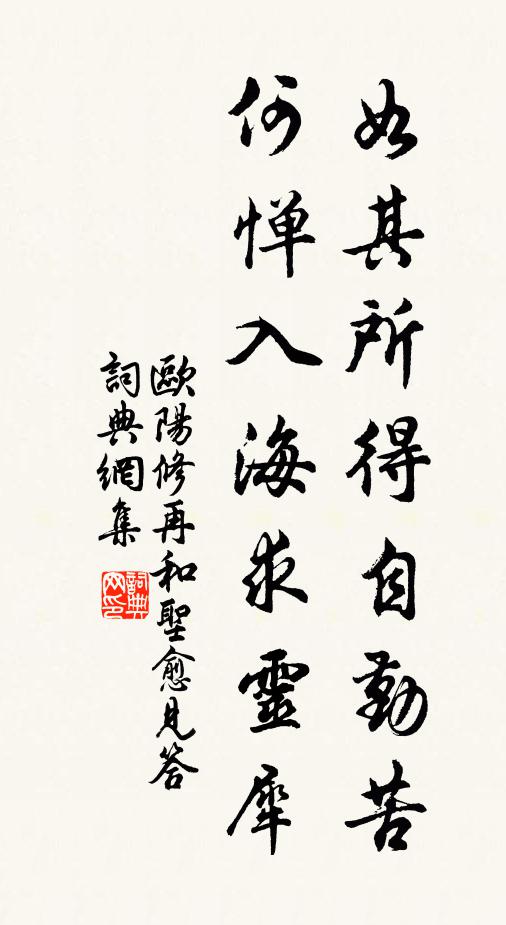 如其所得自勤苦
何惮入海求靈犀
歐陽修再和聖愈見答
詞典網集
詞典網印